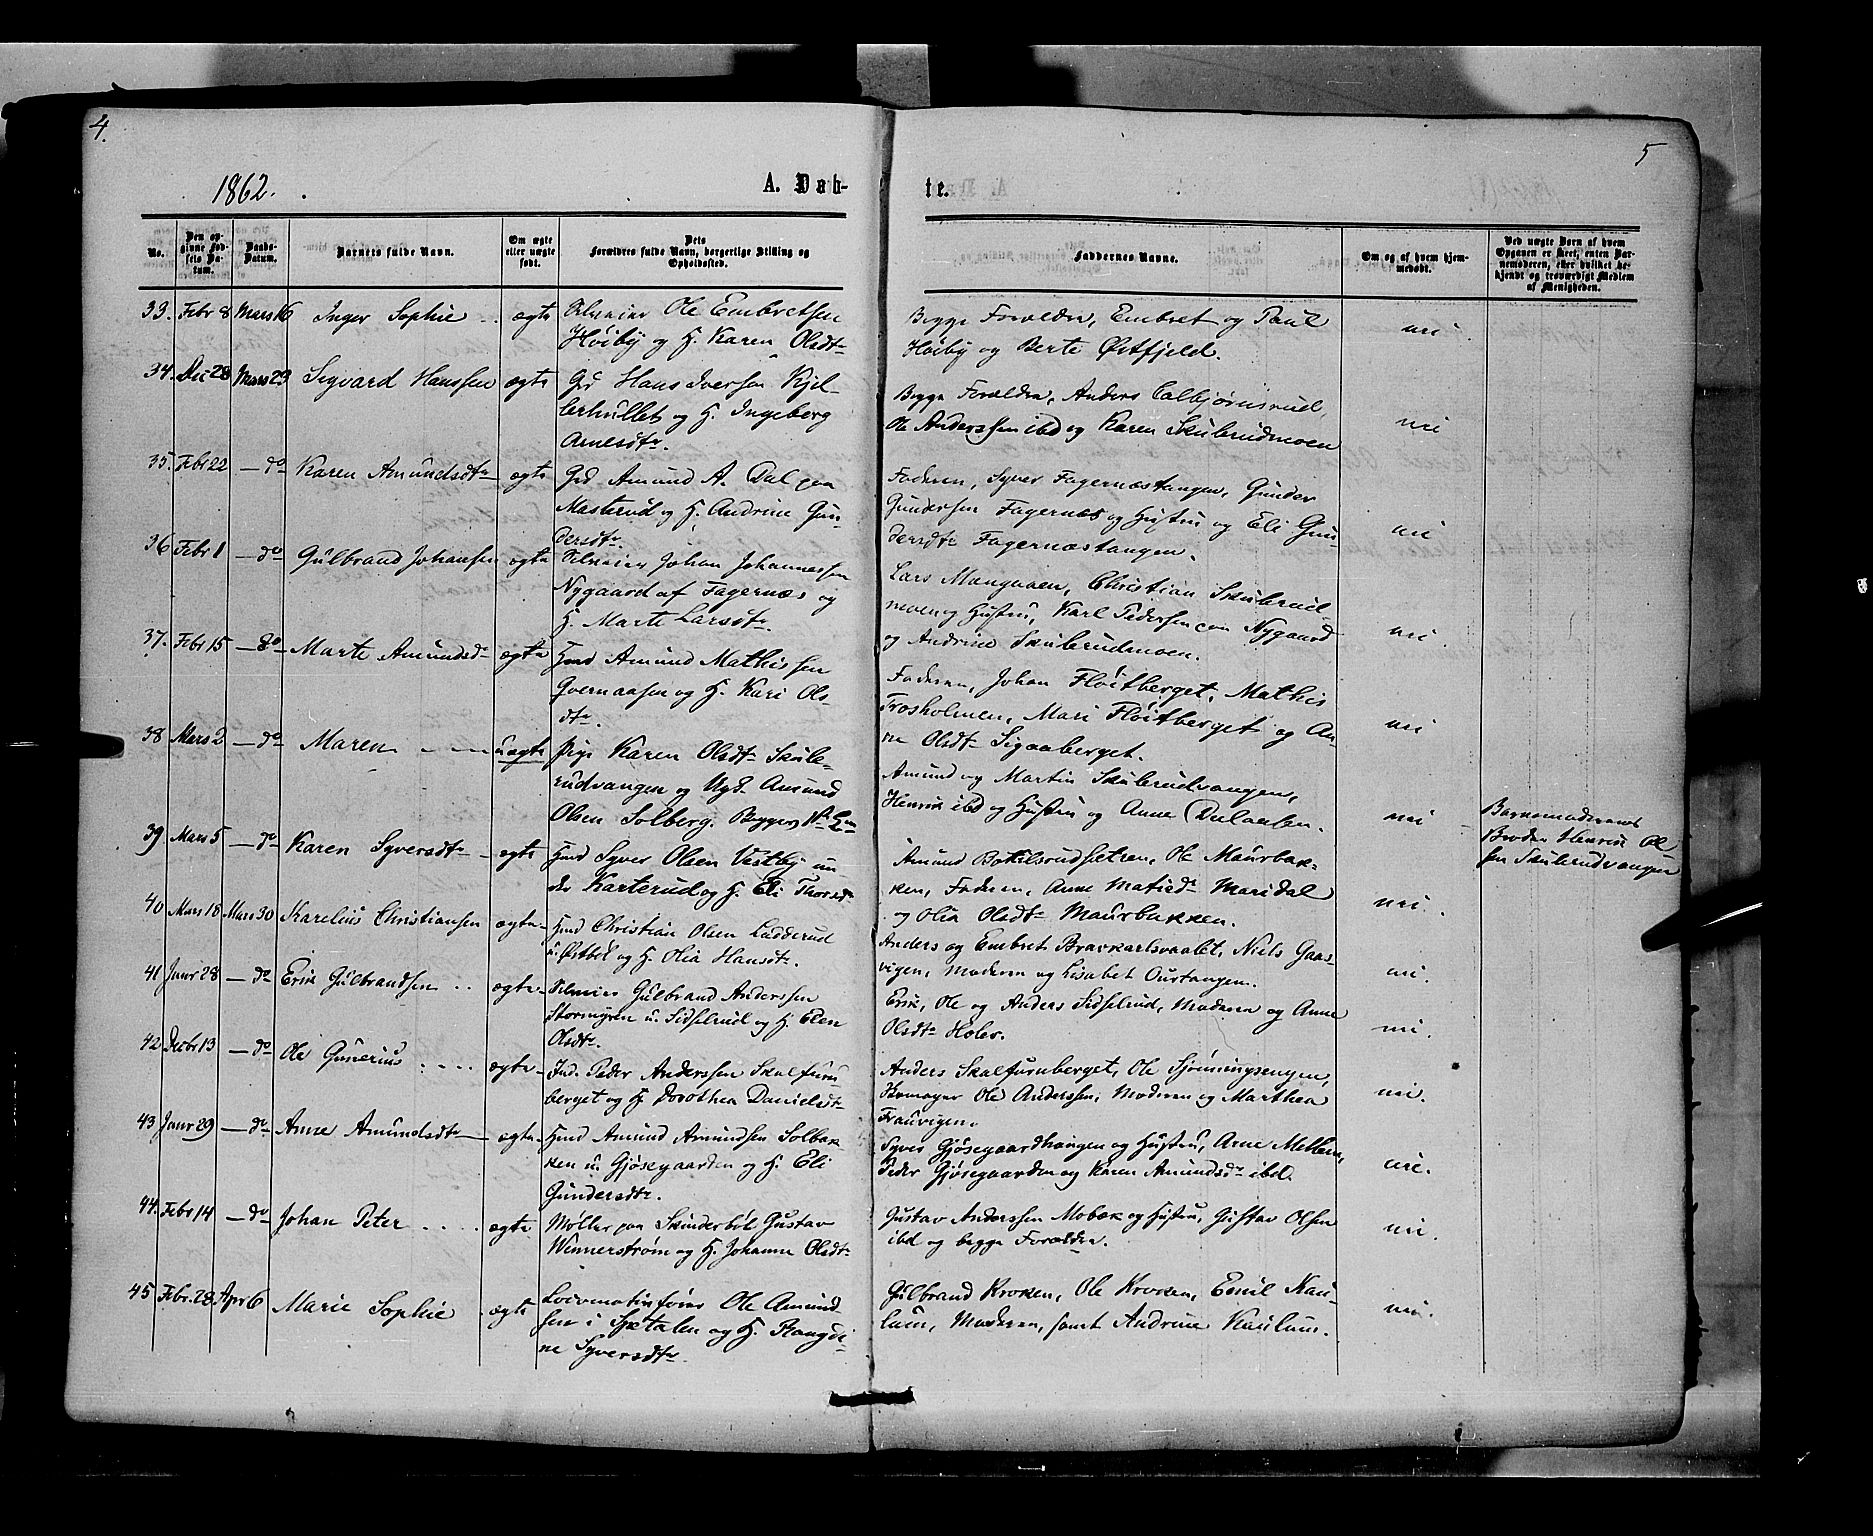 4.
5
1862.
A. Døb-
te.
No.
Den op-
givne Fød-
sels Da-
tum.
Daabs-
Datum.
Barnets fulde Navn.
Om ægte
eller uægte
født.
Dets
Forældres fulde Navn, borgerlige Stilling og
Opholdssted.
Faddernes Navne.
Om og af hvem hjem-
medøbt.
Ved uægte Børn af hvem
Opgaven er skeet, enten Bar-
nemoderen, eller hvilket be-
kjendt og troværdigt Medlem
af Menigheden.
33. Febr 8 Mars 16 Inger Sophie ægte Ole Embretsen
Høiby og H. Karen Olsdtr
Begge Forældre, Embret og Paul
Høiby og Berte Østfjeld.
nei
34. Dec 28 Mars 23 Sigvard Hanssen ægte Grd Hans Iversen Kjel-
lerhullet og H. Ingeborg
Arnesdtr.
Begge Forældre, Anders Colbjørnsrud,
Ole Anderssen ibd og Karen Skulerudmoen
nei
35. Febr 22 — do Karen Amundsdtr ægte Grd Amund A. Dal paa
Masterud og H. Andrine Gun-
dersdtr
Faderen, Syver Fagernæstangen, Gunder
Gundersen Fagernæs og Hustru og Eli Gun-
dersdtr Fagernæstangen.
nei
36 Febr 1 — do Gulbrand Johansen ægte Johan Johannessen
Nygaard af Fagernæs og
H. Marte Larsdtr.
Lars Mangnæen, Christian Skulerud-
moen og Hustru, Karl Pedersen paa Nygaard
og Andrine Skulerudmoen.
nei
37. Febr 15 — do Marte Amundsdr ægte Hmd Amund Mathissen
Gvernaasen og H. Kari Ols-
dtr.
Faderen, Johan Fløitberget, Mathis
Trosholmen, Mari Fløitberget og An-
ne Olsdtr Sigaaberget.
nei
38 Mars 2 — do Maren uægte Pige Karen Olsdtr Skule-
rudvangen og Ugk. Amund
Olsen Solberg. Begges 1ste
Amund og Martin Skulerudvangen,
Henrik ibd og Hustru og Anne Dulaasen.
nei
Barnemoderens
Broder Henrik Ol-
sen Skulerudvangen
39 Mars 5 — do Karen Syversdtr ægte Hmd Syver Olsen Vestby un-
der Karterud og H. Eli Thorsdtr
Amund Botilsrudsetren, Ole Maurbak-
ken, Faderen, Anne Matiedr Maridal
og Olia Olsdtr Maurbakken.
nei
40 Mars 18 Mars 30 Karelius Christiansen ægte Hmd Christian Olsen Ladderud
u. Østbøl og H. Olia Hansdtr.
Anders og Embret Bravkarlsvaalet, Niels Gaas-
vigen, Moderen og Lisabet Ourtangen.
nei
41 Janr 28 — do Erik Gulbrandsen ægte Gulbrand Anderssen
Stormyren u. Sidselrud og H. Elen
Olsdtr.
Erik, Ole og Anders Sidselrud, Moderen og Anne
Olsdtr Holer.
nei.
42 Decbr 13 — do Ole Gunerius ægte Ind. Peder Anderssen Skalfuru-
berget og H. Dorothea Danielsdtr
Anders Skalfuruberget, Ole Sjønningsengen,
Ole Anderssen, Moderen og Marthea
Frauvigen.
nei.
43 Janr 29 — do Anne Amundsdtr ægte Hmd Amund Amundsen Solbak-
ken u. Gjøsegaarden og H. Eli
Gundersdtr.
Syver Gjøsegaardhaugen og Hustru, Arne Mellem,
Peder Gjøsegaarden og Karen Amundsdr ibd.
nei.
44. Febr 14 — do Johan Peter ægte Møller paa Skinderbøl Gustav
Wennerstrøm og H. Johanne Olsdtr
Gustav Anderssen Mobæk og Hustru, Gustav Olsen
ibd og begge Forældre.
nei.
45 Febr. 28 Apr 6 Marie Sophie ægte Locomotivfører Ole Amund-
sen i Spetalen og H. Rangdi-
ne Syversdtr.
Gulbrand Kroken, Ole Kroken, Emil Kau-
lum, Moderen, samt Andrine Kaulum.
nei.